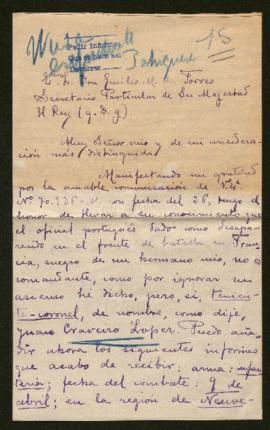 15
Pedir informes
Exmo. Sr. Don Emilio M. de Torres
Secretario Particular de Su Majestad
El Rey (q. D. g.)
Muy Señor mio y de mi conside-
ración más distinguida:
Manifestando mi gratitud
por la amable comunicación de V.
Nº 70.338-M con fecha del 26, tengo el
honor de llevar a su conocimiento que
el oficial portugués dado como desapa-
recido en el frente de batalla en Fran-
cia, suegro de un hermano mio, no es
comandante, como por ignorar un
ascenso he dicho, pero, si, tenien-
te-coronel, de nombre, como dije,
Juan Craveiro Lopes. Puedo aña-
dir ahora los siguientes informes
que acabo de recibir: arma: infan
teria; fecha del combate: 9 de
abril; en la región de Neuve-